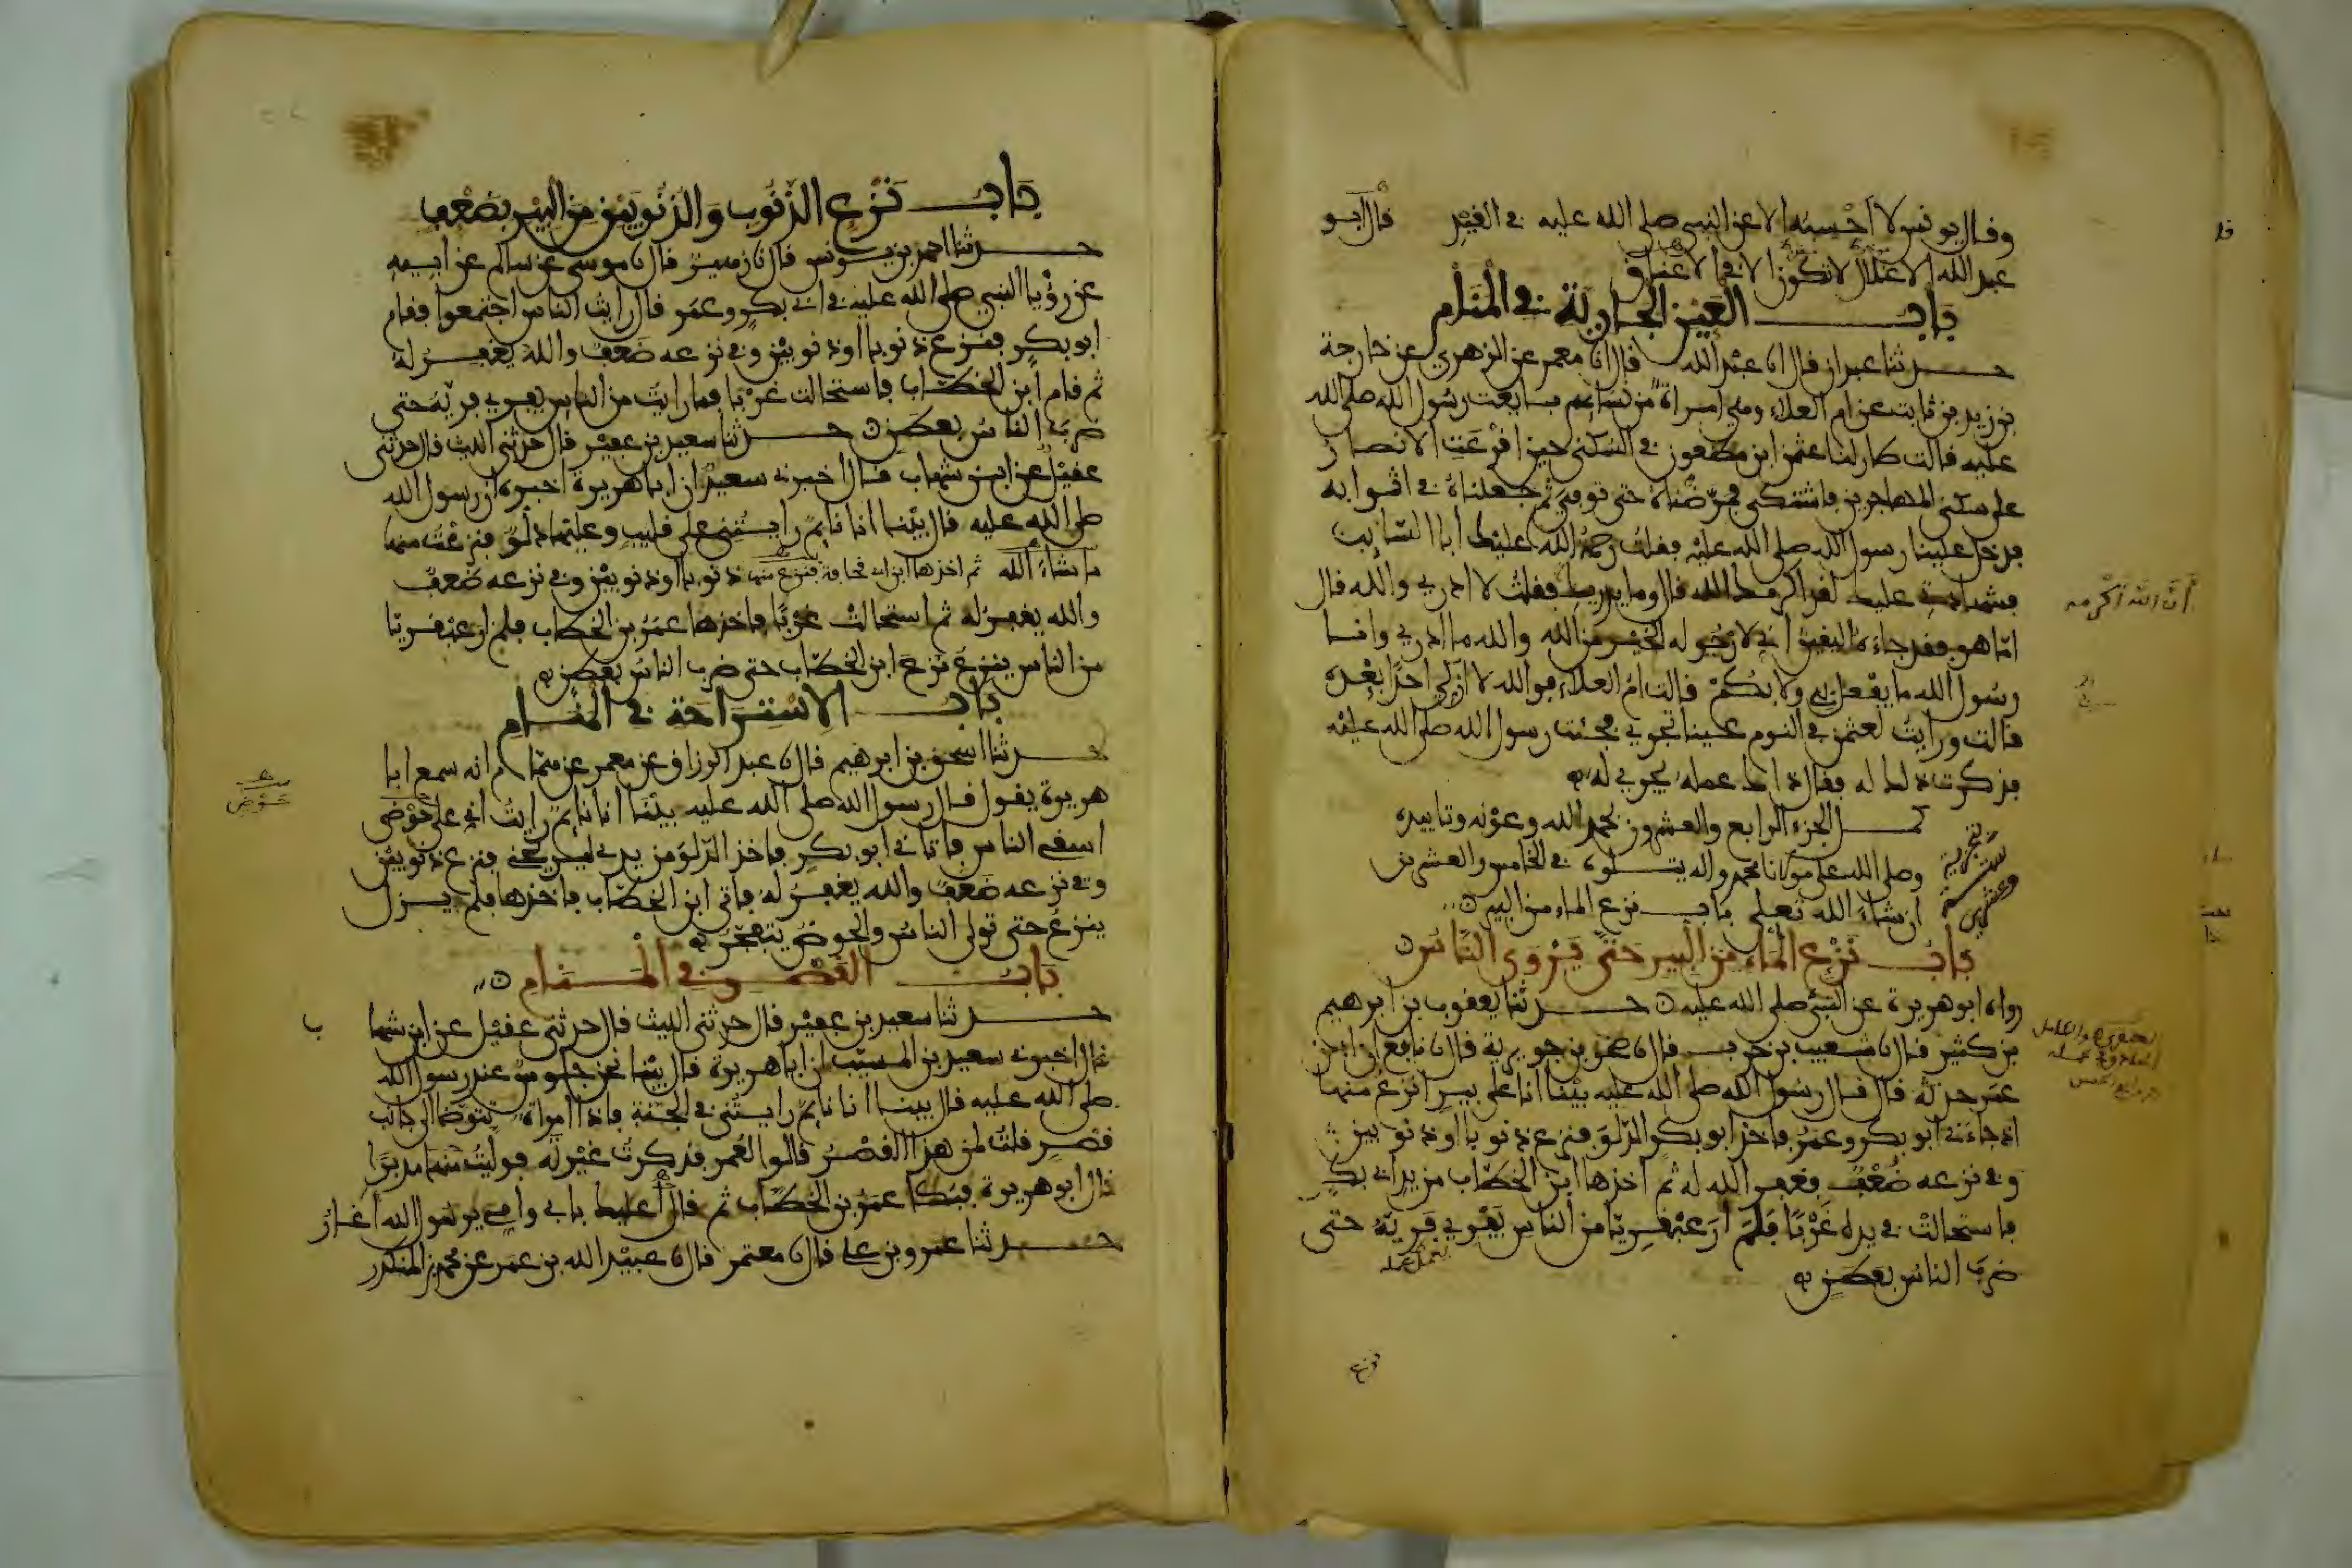 وقال يونس لا أحسبه إلا عن النبي صلى الله عليه في القيد قال أبو
عبد الله الاغلال لا تكون إلا في الاعناق
باب العين الجارية في المنام
حدثنا عبدان قال انا عبد الله قال انا معمر عن الزهري عن خارجة
بن زيد بن ثابت عن ام العلاء وهي امراة من نسائهم بايعت رسول الله صلى الله
عليه قالت طار لنا عثمن ابن مظعون في السكنى حين اقرعت الانصار
على سكنى المهاجرين فاشتكى فمرضناه حتى توفي ثم جعلناه في اثوابه
فدخل علينا رسول الله صلى الله عليه فقلت رحمة الله عليك أبا السايب
فشهادتي عليك لقد اكرمك الله قال وما يدريك فقلت لا ادري والله قال
اما هو فقد جاءه اليقين اني لارجو له الخير من الله والله ما ادري وانا
رسول الله ما يفعل بي ولا بكم قالت ام العلاء فوالله لا ازكي احدا بعده
قالت ورايت لعثمن في النوم عينا تجري فجئت رسول الله صلى الله عليه
فذكرت ذلك له فقال ذاك عمله يجري له
كمل الجزء الرابع والعشرون بحمد الله وعونه وتاييده
وصلى الله على مولانا محمد واله يتلوه في الخامس والعشرين
ان شاء الله تعلى باب نزع الماء من البير
باب نزع الماء من البير حتى يروى الناس
رواه ابو هريرة عن النبي صلى الله عليه حدثنا يعقوب بن ابرهيم
بن كثير قال نا شعيب بن حرب قال نا صخر بن جويرية قال نا نافع ان ابن
عمر حدثه قال قال رسول الله صلى الله عليه بينا انا على بير انزع منها
اذ جاءني ابو بكر وعمر فاخذ ابو بكر الدلو فنزع ذنوبا او ذنوبين
وفي نزعه ضعف فغفر الله له ثم اخذها ابن الخطاب من يد ابي بكر
فاستحالت في يده غربا فلم ار عبقريا من الناس يفري فريه حتى
ضرب الناس بعطن
أن الله أكرمه
يعمل عمله
نزع
باب نزع الذنوب والذنوبين من البير بضعف
حدثنا احمد بن يونس قال نا زهير قال نا موسى عن سالم عن ابيه
عن رؤيا النبي صلى الله عليه في ابي بكر وعمر قال رايت الناس اجتمعوا فقام
ابو بكر فنزع ذنوبا او ذنوبين وفي نزعه ضعف والله يغفر له
ثم قام ابن الخطاب فاستحالت غربا فما رايت من الناس يفري فريه حتى
ضرب الناس بعطن حدثنا سعيد بن عفير قال حدثني الليث قال حدثني
عقيل عن ابن شهاب قال اخبرني سعيد ان ابا هريرة اخبره ان رسول الله
صلى الله عليه قال بينما انا نايم رايتني على قليب وعليها دلو فنزعت منها
ما شاء الله ثم اخذها ابن ابي قحافة فنزع منها ذنوبا او ذنوبين وفي نزعه ضعف
والله يغفر له ثم استحالت غربا فاخذها عمر بن الخطاب فلم ار عبقريا
من الناس ينزع نزع ابن الخطاب حتى ضرب الناس بعطن
باب الاستراحة في المنام
حدثنا اسحق بن ابرهيم قال نا عبد الرزاق عن معمر عن همام انه سمع ابا
هريرة يقول قال رسول الله صلى الله عليه بينما انا نايم رايت اني على حوض
اسقي الناس فاتاني ابو بكر فاخذ الدلو من يدي ليريحني فنزع ذنوبين
وفي نزعه ضعف والله يغفر له فاتى ابن الخطاب فاخذها فلم يزل
ينزع حتى تولى الناس والحوض يتفجر
باب القصر في المنام
حدثنا سعيد بن عفير قال حدثني الليث قال حدثني عقيل عن ابن شها ب
قال اخبرني سعيد بن المسيب ان ابا هريرة قال بينما نحن جلوس عند رسول الله
صلى الله عليه قال بينا انا نايم رايتني في الجنة فاذا امراة تتوضا الى جانب
قصر قلت لمن هذا القصر قالوا لعمر فذكرت غيرته فوليت منها مدبرا
قال ابو هريرة فبكا عمر بن الخطاب ثم قال أعليك بابي وامي يرسول الله اغار
حدثنا عمرو بن علي قال نا معتمر قال نا عبيد الله بن عمر عن محمد بن المنكدر